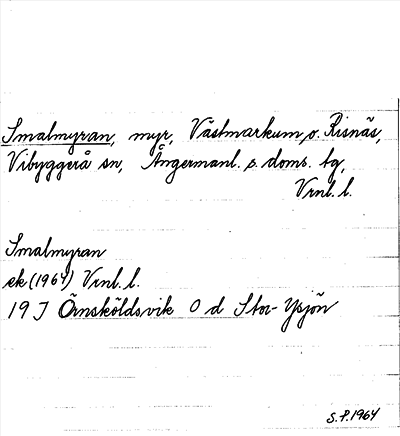 Smalmyran, myr, Västmarkum o. Risnäs,
Vibyggerå sn, Ångermanl. s. doms. tg,
Vrnl. l.
Smalmyran
ek (1964) Vrnl. l.
19 J Örnsköldsvik O d Stor-Ysjön
S.P. 1964